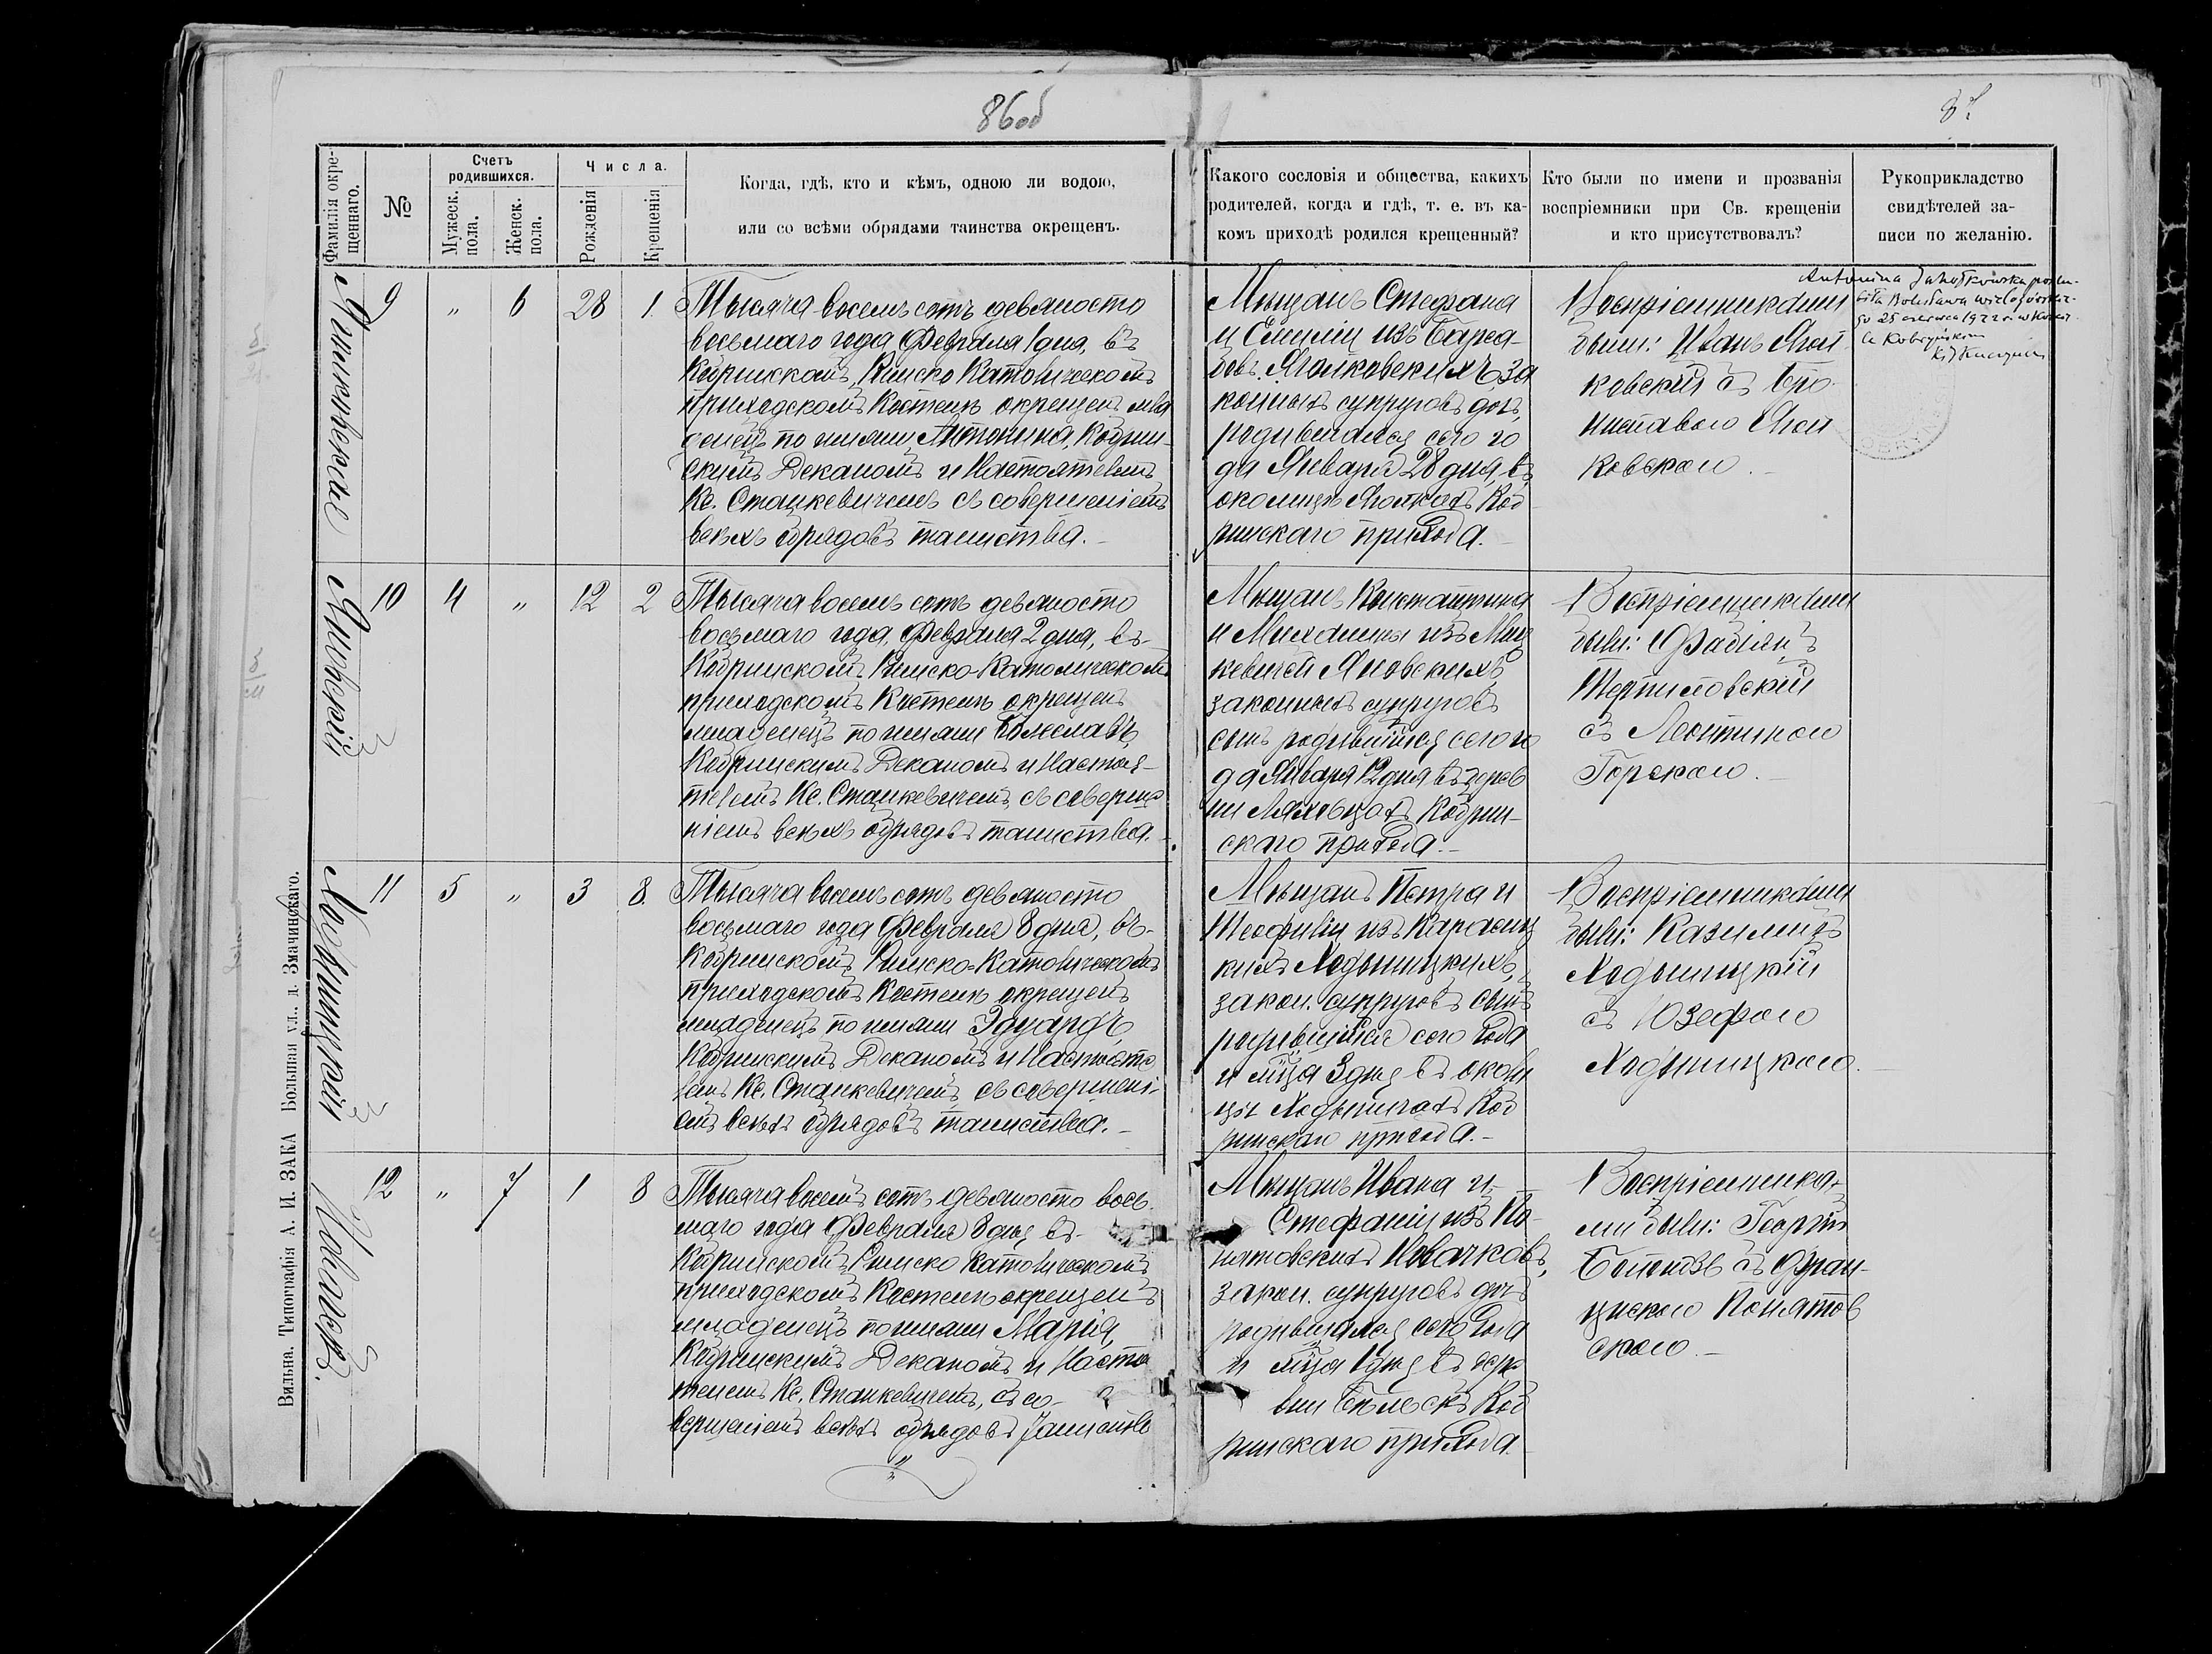 86об
87
Фамилія окре-
щеннаго.
№
Счетъ
родившихся.
Мужеск.
пола.
Женск.
пола.
Числа.
Рожденія
Крещенія
Когда, гдѣ, кто и кѣмъ, одною ли водою,
или со всѣми обрядами таинства окрещенъ.
Какого сословія и общества, какихъ
родителей, когда и гдѣ, т. е. въ ка-
комъ приходѣ родился крещенный?
Кто были по имени и прозванія
воспріемники при Св. крещеніи
и кто присутствовалъ?
Рукоприкладство
свидѣтелей за-
писи по желанію.
9 " 6 28 1
Тысяча восемь сотъ девяносто
восьмаго года Февраля 1 дня, въ
Кобринскомъ Римско Католическомъ
приходскомъ Костелѣ окрещенъ мла
денецъ по имени Антонина, Кобрин-
скимъ Деканомъ и Настоятелемъ
Кс. Станкевичемъ съ совершеніемъ
всѣхъ обрядовъ таинства.
Мѣщанъ Стефана
и Емиліи изъ
за
конныхъ супруговъ дочь,
родившаяся сего го
да Января 28 дня, въ
околицѣ Коб
ринскаго прихода.
Воспріемниками
были: Иванъ
ковскій съ Бро
ниславою
ковскою.
Antonina poślu-
biła Bolesława
go 25 czerwca 1922 r. w
le Kobryńskim
Яновскій
10 4 " 12 2
Тысяча восемь сотъ девяносто
восьмаго года, Февраля 2 дня, въ
Кобринскомъ Римско-Католическомъ
приходскомъ Костелѣ окрещенъ
младенецъ по имени Болеславъ,
Кобринскимъ Деканомъ и Настоя-
телемъ Кс. Станкевичемъ, съ соверше
ніемъ всѣхъ обрядовъ таинства.
Мѣщанъ Константина
и Михалины изъ Миц
кевичей Яновскихъ,
законныхъ супруговъ
сынъ родившійся сего го
да Января 12 дня въ дерев
ни Ляховцахъ Кобрин-
скаго прихода.
Воспріемниками
были: Фабіянъ
съ Леонтиною
Горскою.
Ходыницкій
11 5 " 3 8
Тысяча восемь сотъ девяносто
восьмаго года Февраля 8 дня, въ
Кобринскомъ Римско-Католическомъ
приходскомъ Костелѣ окрещенъ
младенецъ по имени Эдуардъ,
Кобринскимъ Деканомъ и Настояте
лемъ Кс. Станкевичемъ, съ совершені-
емъ всѣхъ обрядовъ таинства.
Мѣщанъ Петра и
Теофиліи изъ Карасиц
кихъ Ходыницкихъ,
закон. супруговъ сынъ
родившійся сего года
и м-ца 3 дня въ околи
цѣ Ходыничахъ Коб
ринскаго прихода.
Воспріемниками
были: Казиміръ
Ходыницкій
съ Юзефою
Ходыницкою.
Новачекъ.
12 " 7 1 8
Тысяча восемь сотъ девяносто вось
маго года Февраля 8 дня въ
Кобринскомъ Римско Католическомъ
приходскомъ Костелѣ окрещенъ
младенецъ по имени Марія,
Кобринскимъ Деканомъ и Настоя
телемъ Кс. Станкевичемъ, съ со-
вершеніемъ всѣхъ обрядовъ таинства
Мѣщанъ Ивана и
Стефаніи изъ По-
нятовскихъ Новачковъ,
закон. супруговъ дочь
родившаяся сего года
и м-ца 1 дня въ дер
вни Коб
ринскаго прихода.
Воспріемника-
ми были: Георгій
съ Фран-
цискою Понятов
скою.
Вильна. Типографія А. И. ЗАКА Большая ул., д. Змачинскаго.